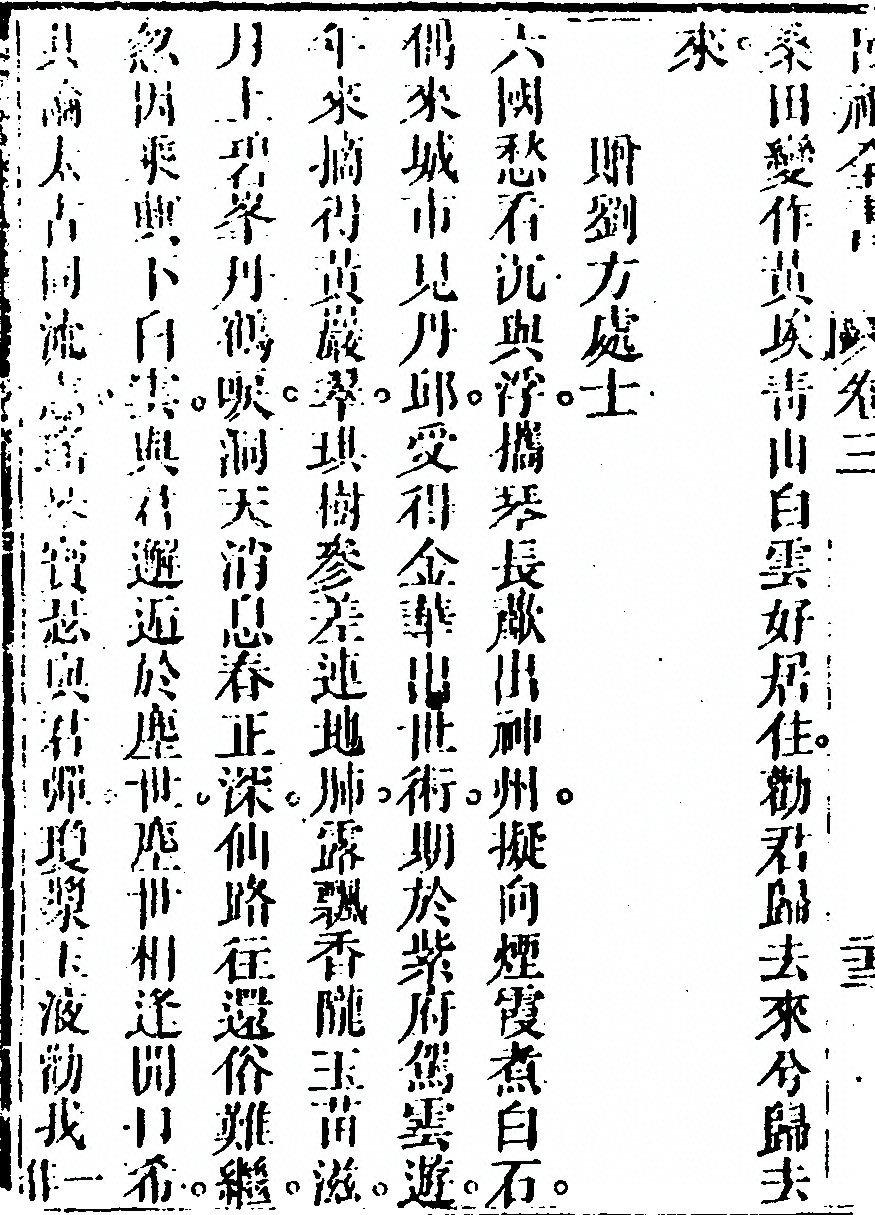 全書 卷三
桑田變作黃埃青山白雲好居住。勸君歸去來兮歸去
來。
贈劉方處士
六國愁看沉與浮。攜琴長歗出神州。擬向煙霞煮白石。
偶來城市見丹邱。受得金華出世術。期於紫府駕雲遊。
年來摘得黃巖翠。琪樹參差連地肺。露飄香隴玉苗滋。
月上碧峯丹鶴唳。洞天消息春正深。仙路往還俗難繼。
忽因乘興下白雲。與君邂逅於塵世。塵世相逢開口希。
共論太古同流志。瑤琴寶瑟與君彈。瓊漿玉液勸我